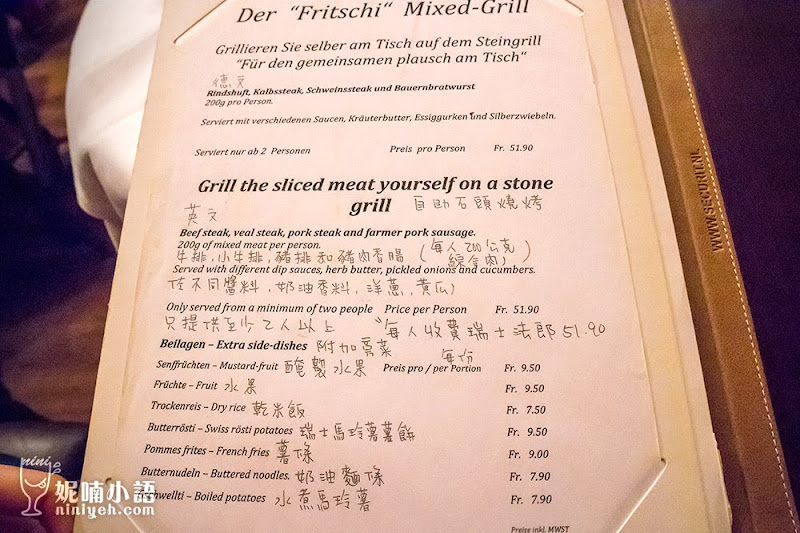 Der “Fritschi“ Mixed-Grill
Grillieren Sie selber am Tisch auf dem Steingrill
"Für den gemeinsamen plausch am Tisch“
德文
Rindshuft, Kalbssteak, Schweinssteak und Bauernbratwurst
200g pro Person.
Serviert mit verschiedenen Saucen, Kräuterbutter, Essiggurken und Silberzwiebeln.
Serviert nur ab 2 Personen Preis pro Person Fr. 51.90
Grill the sliced meat yourself on a stone
grill 自助石頭燒烤
英文
Beef steak, veal steak, pork steak and farmer pork sausage.
200g of mixed meat per person.
牛排,小牛排,豬排和豬肉香腸 (每人200公克綜合肉)
Served with different dip sauces, herb butter, pickled onions and cucumbers.
佐不同醬料,奶油香料,洋蔥,黃瓜
Only served from a minimum of two people Price per Person Fr. 51.90
只提供至少2人以上 每人收費瑞士法郎51.90
Beilagen – Extra side-dishes 附加 菜
Senffrüchten – Mustard-fruit 醃製水果 Preis pro / per Portion 每份 Fr. 9.50
Früchte – Fruit 水果 Fr. 9.50
Trockenreis – Dry rice 乾米飯 Fr. 7.50
Butterrösti – Swiss rösti potatoes 瑞士馬玲薯薯餅 Fr. 9.50
Pommes frites – French fries 薯條 Fr. 9.00
Butternudeln – Buttered noodles. 奶油麵條 Fr. 7.90
– Boiled potatoes 水煮馬玲薯 Fr. 7.90
Preise inkl. MWST
WWW.SECURIT.NL
nini
妮喃小語
niniyeh.com